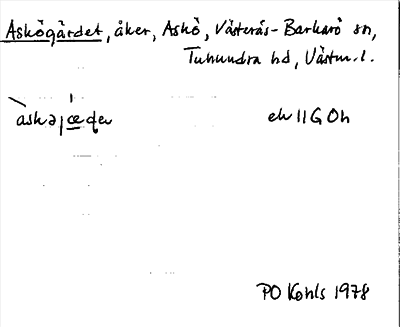 Askögärdet, åker, Askö, Västerås-Barkarö sn,
Tuhundra hd, Västm.l.
askəjæɖeɳ ek 11 G 0h
PO Kohls 1978